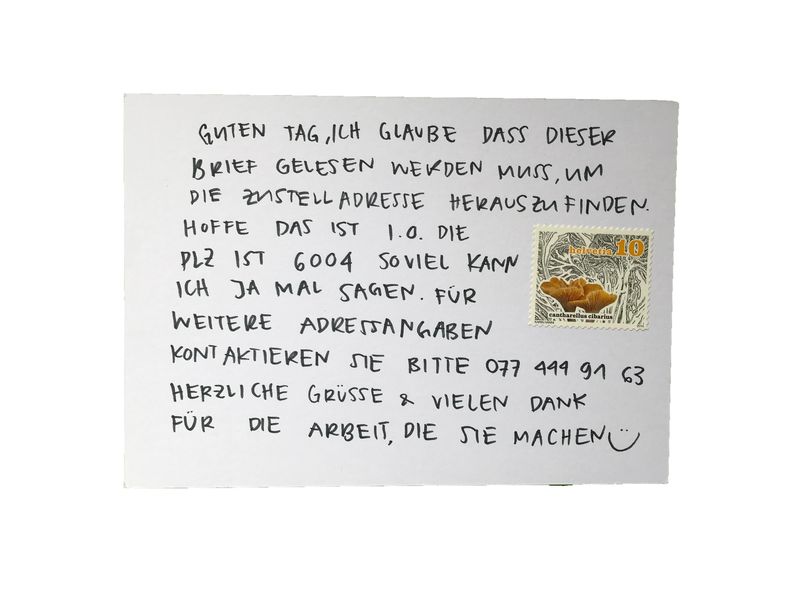 GUTEN TAG, ICH GLAUBE DASS DIESER
BRIEF GELESEN WERDEN MUSS, UM
DIE ZUSTELLADRESSE HERAUSZUFINDEN.
HOFFE DAS IST I.O. DIE
PLZ IST 6004 SOVIEL KANN
ICH JA MAL SAGEN. FÜR
WEITERE ADRESSANGABEN
KONTAKTIEREN SIE BITTE 077 444 91 63
HERZLICHE GRÜSSE & VIELEN DANK
FÜR DIE ARBEIT, DIE SIE MACHEN
helvetia 10
cantharellus cibarius